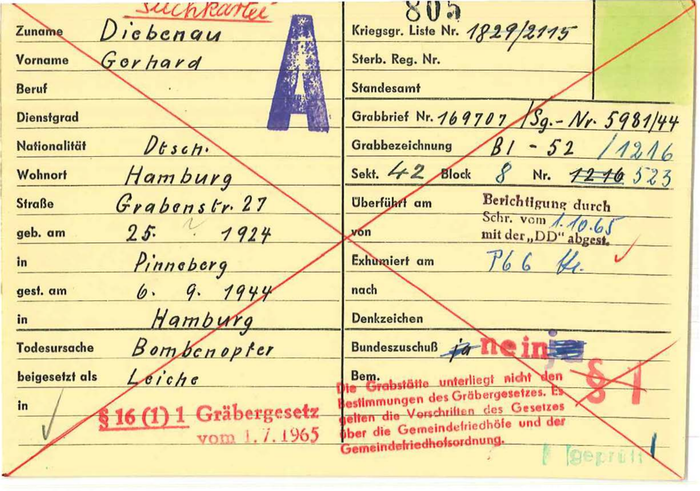 Suchkartei
805
Zuname Diebenau
Vorname Gerhard
Beruf
Dienstgrad
Nationalität Dtsch.
Wohnort Hamburg
Straße Grabenstr. 27
geb. am 25. 1924
in Pinneberg
gest. am 6. 9. 1944
in Hamburg
Todesursache Bombenopfer
beigesetzt als Leiche
in
§ 16 (1) 1 Gräbergesetz
vom 1.7.1965
A
Kriegsgr. Liste Nr. 1829/2115
Sterb. Reg. Nr.
Standesamt
Grabbrief Nr. 169707 /Sg.-Nr. 5981/44
Grabbezeichnung BI - 52 /1216
Sekt. 42 Block 8 Nr. 1216 523
Überführt am
von
Berichtigung durch
Schr. vom 1.10.65
mit der „DD" abgest.
Exhumiert am
nach
Denkzeichen
Bundeszuschuß ja nein ja
Bem.
§ 1
Die Grabstätte unterliegt nicht den
Bestimmungen des Gräbergesetzes. Es
gelten die Vorschriften des Gesetzes
über die Gemeindefriedhöfe und der
Gemeindefriedhofsordnung.
geprüft